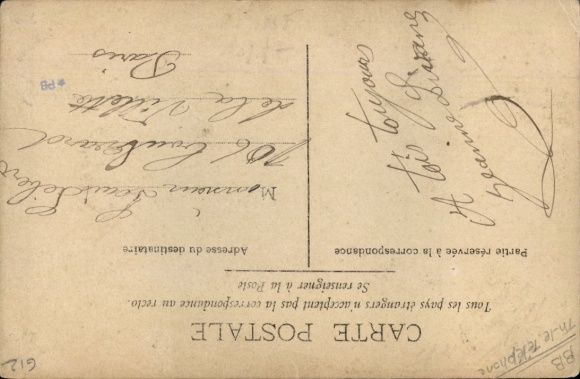 CARTE POSTALE
Tous les pays étrangers n'acceptent pas la correspondance au recto.
Se renseigner à la Poste
Partie réservée à la correspondance
Adresse du destinataire
A toi toujours
Jeanne
M
Monsieur
de la Villette
Paris
*PB
BB
Th-le Téléphone
612